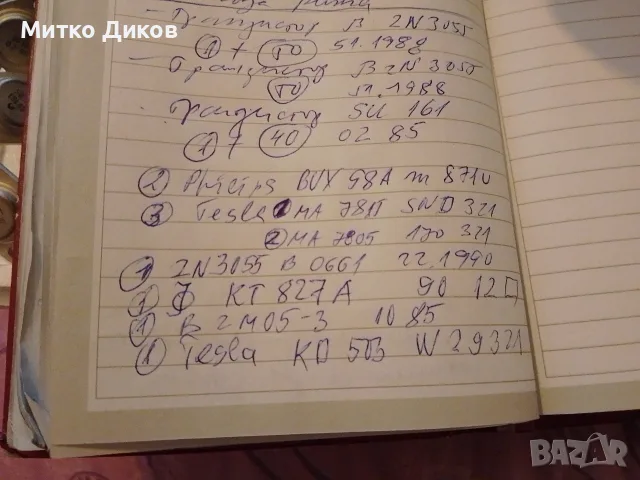 Митко Диков
- Транзистор B 2N3055
① 7 (TO) S1.1988
- Транзистор B 2N3055
(TO) 1988
Транзистор SU 161
① 7 (40) 02 85
② Philips BUX 98A m 8710
③ Tesla MA SND 321
② MA 7805 170 321
2N3055 B 0661 22 1990
KT 827A 90 12 □
① 10 85
① Tesla KD 503 W 29321
BAZAR